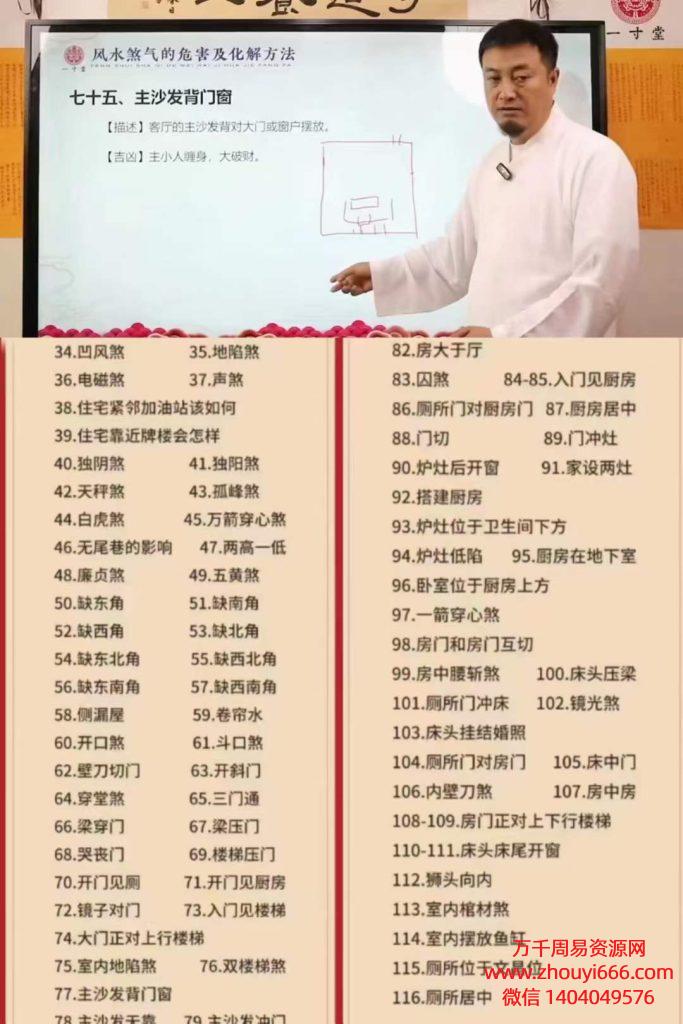 一寸堂
一寸堂
风水煞气的危害及化解方法
FENG SHUI SHA QI DE WEI HAI JI HUA JIE FANG FA
七十五、主沙发背门窗
【描述】客厅的主沙发背对大门或窗户摆放。
【吉凶】主小人缠身，大破财。
34.凹风煞 35.地陷煞
36.电磁煞 37.声煞
38.住宅紧邻加油站该如何
39.住宅靠近牌楼会怎样
40.独阴煞 41.独阳煞
42.天秤煞 43.孤峰煞
44.白虎煞 45.万箭穿心煞
46.无尾巷的影响 47.两高一低
48.廉贞煞 49.五黄煞
50.缺东角 51.缺南角
52.缺西角 53.缺北角
54.缺东北角 55.缺西北角
56.缺东南角 57.缺西南角
58.侧漏屋 59.卷帘水
60.开口煞 61.斗口煞
62.壁刀切门 63.开斜门
64.穿堂煞 65.三门通
66.梁穿门 67.梁压门
68.哭丧门 69.楼梯压门
70.开门见厕 71.开门见厨房
72.镜子对门 73.入门见楼梯
74.大门正对上行楼梯
75.室内地陷煞 76.双楼梯煞
77.主沙发背门窗
78.主沙发无靠 79.主沙发冲门
82.房大于厅
83.囚煞 84-85.入门见厨房
86.厕所门对厨房门 87.厨房居中
88.门切 89.门冲灶
90.炉灶后开窗 91.家设两灶
92.搭建厨房
93.炉灶位于卫生间下方
94.炉灶低陷 95.厨房在地下室
96.卧室位于厨房上方
97.一箭穿心煞
98.房门和房门互切
99.房中腰斩煞 100.床头压梁
101.厕所门冲床 102.镜光煞
103.床头挂结婚照
104.厕所门对房门 105.床中门
106.内壁刀煞 107.房中房
108-109.房门正对上下行楼梯
110-111.床头床尾开窗
112.狮头向内
113.室内棺材煞
114.室内摆放鱼缸
115.厕所位于文昌位
116.厕所居中
万千周易资源网
www.zhouyi666.com
微信 1404049576